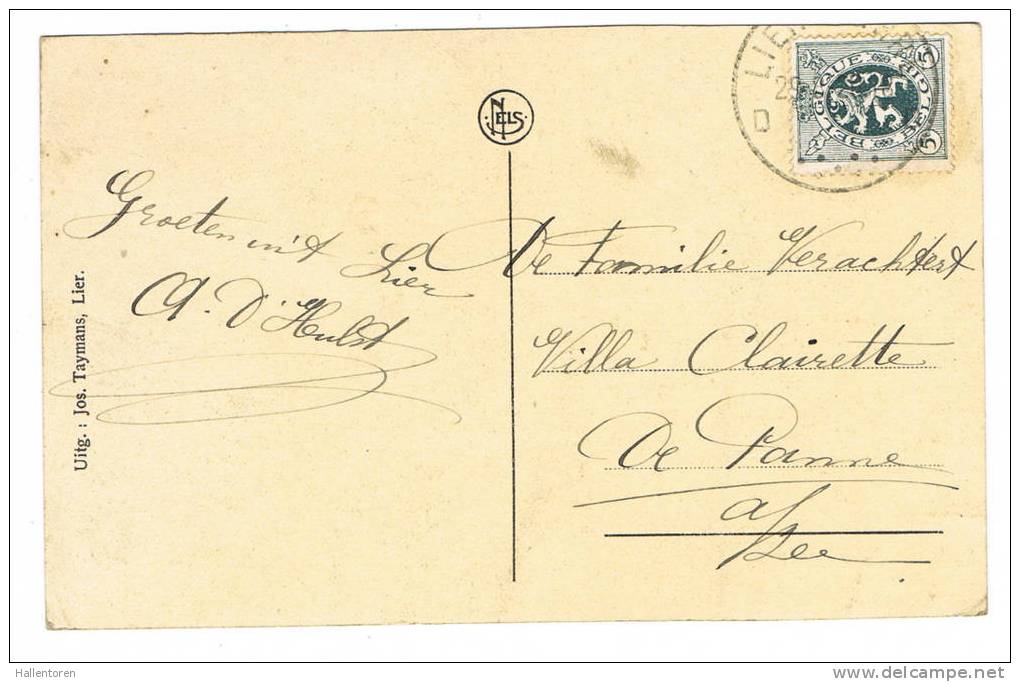 NELS
Groeten uit
Lier
A. D'Hulst
Uitg. : Jos. Taymans, Lier.
LIER
D
BELGIQUE BELGIË
5 5
De Familie Verachtert
Villa Clairette
De Panne
a/Zee
Hallentoren
www.delcampe.net